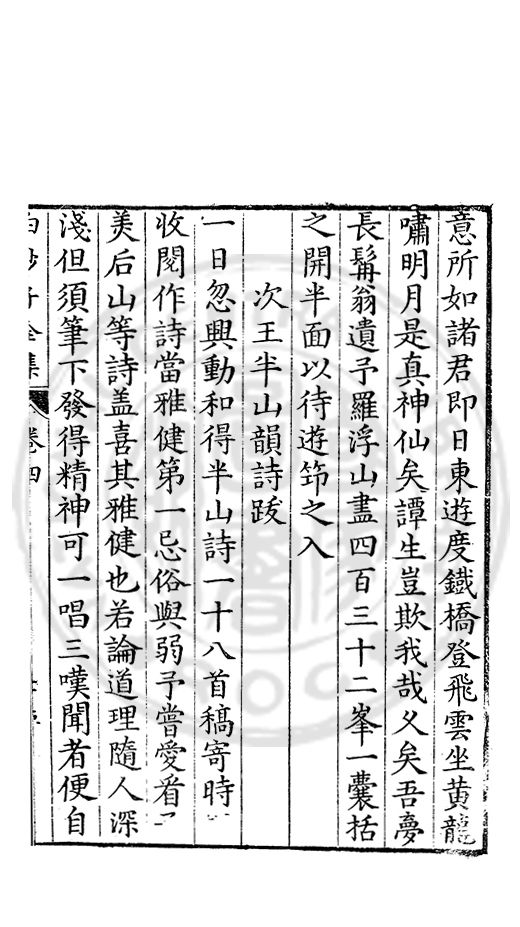 意所如諸君即日東遊度鐵橋登飛雲坐黄龍
嘯明月是真神仙矣譚生豈欺我哉久矣吾夢
長髯翁遺予羅浮山盡四百三十二峯一囊括
之開半面以待遊笻之入
次王半山韻詩跋
一日忽興動和得半山詩一十八首稿寄時
收閱作詩當雅健第一忌俗與弱予嘗愛看
美后山等詩盖喜其雅健也若論道理隨人深
淺但須筆下發得精神可一唱三嘆聞者便自
白沙子全集 卷四